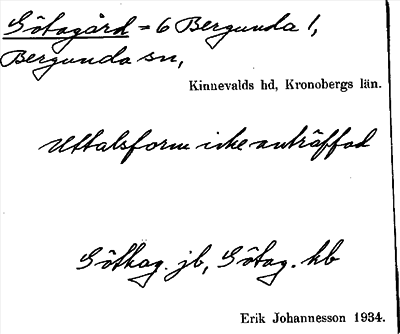 Götagård = 6 Bergunda 1,
Bergunda sn,
Kinnevalds hd, Kronobergs län.
Uttalsform icke anträffad
Götkag. jb, Götag. kb
Erik Johannesson 1934.